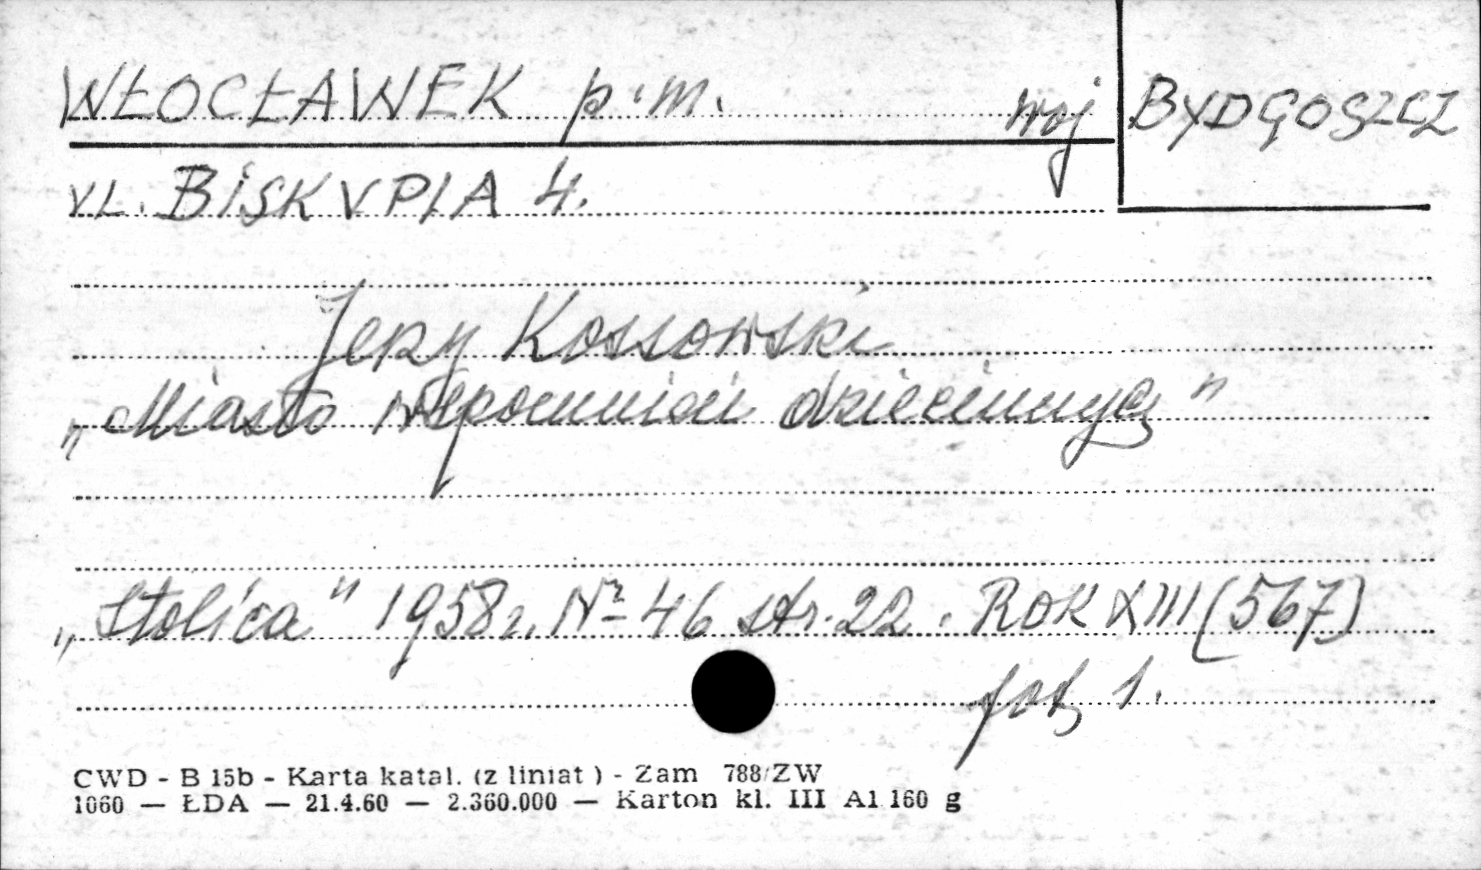 WŁOCŁAWEK p.m. woj BYDGOSZCZ
UL. BISKUPIA 4.
Jerzy Kossowski
„Miasto wspomnień dziecinnych"
„Stolica" 1958r. Nr 46 str. 22. ROK XIII (567)
fot. 1.
CWD - B 15b - Karta katal. (z liniat ) - Zam 788/ZW
1060 — ŁDA — 21.4.60 — 2.360.000 — Karton kl. III A1 160 g